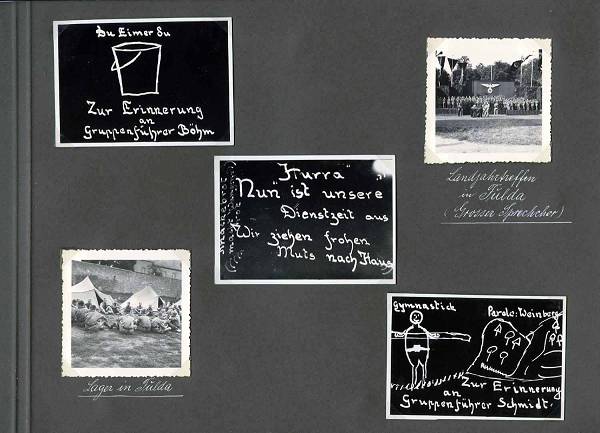 Du Eimer du
Zur Erinnerung
an
Gruppenführer Böhm
Landjahrtreffen
in Fulda
(Grosser Sprechchor)
"Hurra"
"Nun" ist unsere
Dienstzeit aus
Wir ziehen frohen
Muts nach Haus
Lager in Fulda
Gymnastick
Parole: Weinberg
Zur Erinnerung
an
Gruppenführer Schmidt.